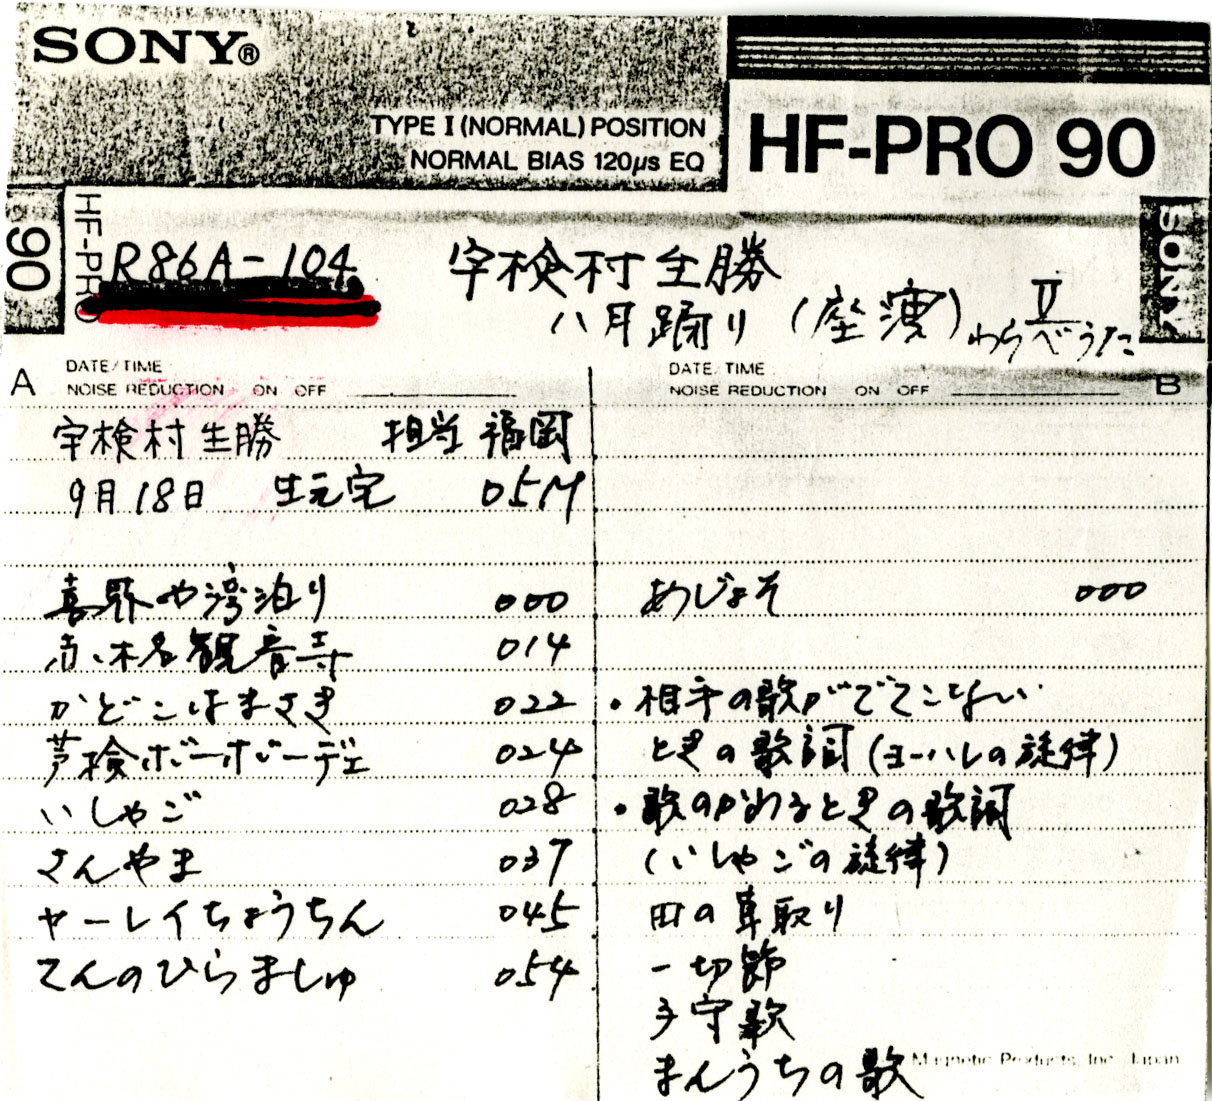 SONY®
TYPE I (NORMAL) POSITION
NORMAL BIAS 120μs EQ
HF-PRO 90
90
HF-PRO
SONY
R86A-104
宇検村生勝
八月踊り (座演) Ⅱ
わらべうた
A
DATE/TIME
NOISE REDUCTION ON OFF
宇検村生勝 担当 福岡
9月18日 生元宅 05M
喜界や湾泊り 000
赤木名観音寺 014
かどこはまさき 022
芦検ボーボーデェ 024
いしゃご 028
さんやま 037
ヤーレイちょうちん 045
てんのひらましゅ 054
DATE/TIME
NOISE REDUCTION ON OFF
B
あじょそ 000
・相手の歌がでてこない
ときの歌詞(ヨーハレの旋律)
・歌のかわるときの歌詞
(いしゃごの旋律)
田の草取り
一切節
子守歌
まんうちの歌
Magnetic Products, Inc. Japan